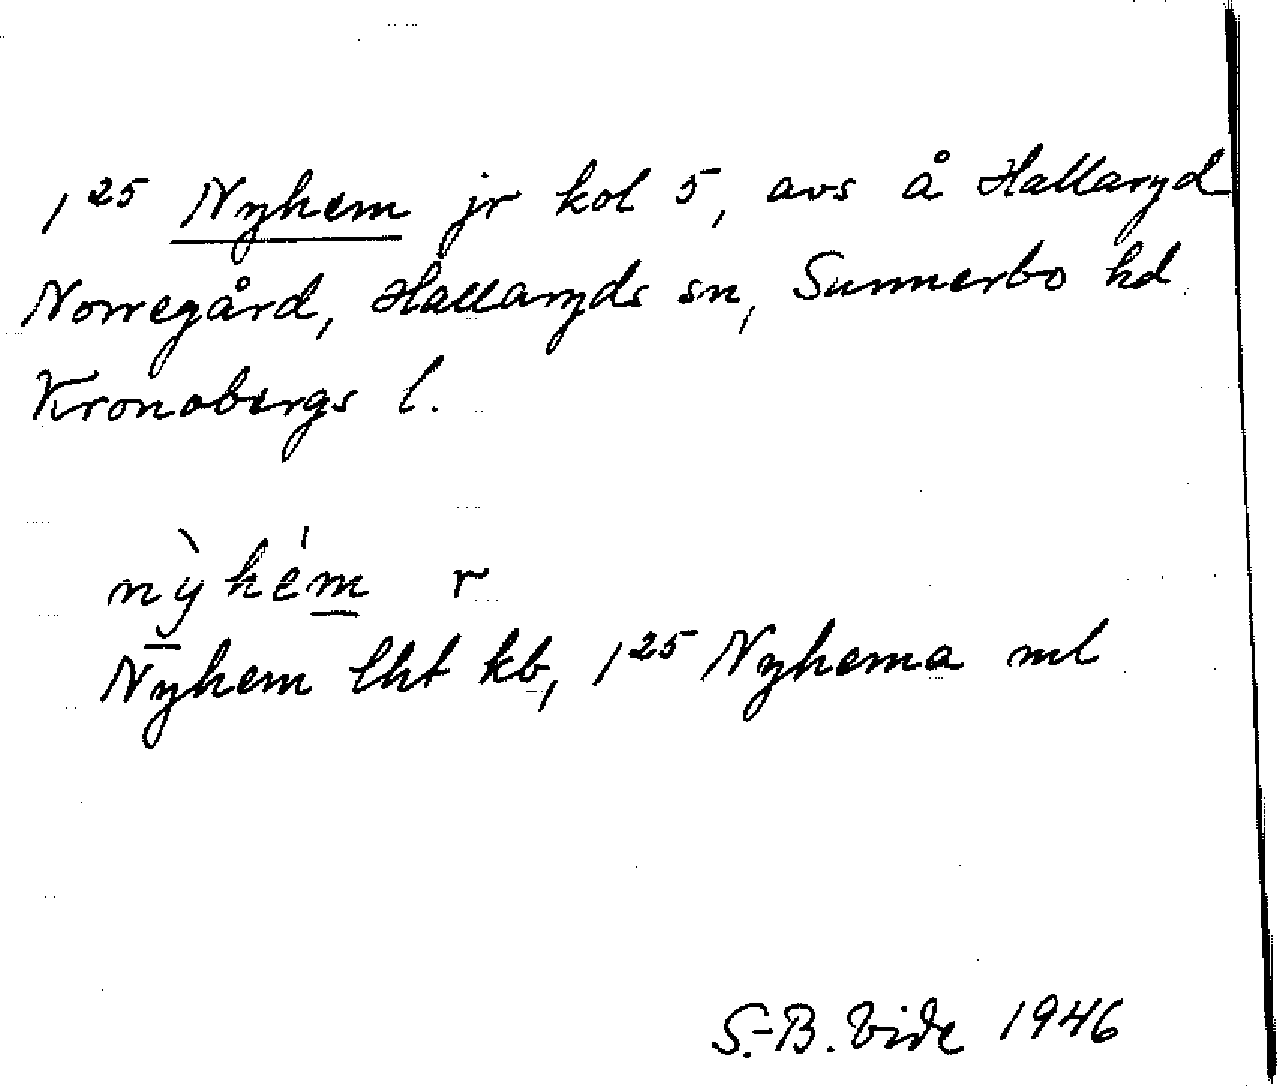 1²⁵ Nyhem jr kol 5, avs å Hallaryd
Norregård, Hallaryds sn, Sunnerbo hd
Kronobergs l.
nỳhém r
Nyhem lht kb, 1²⁵ Nyhema ml
S.-B. Vide 1946